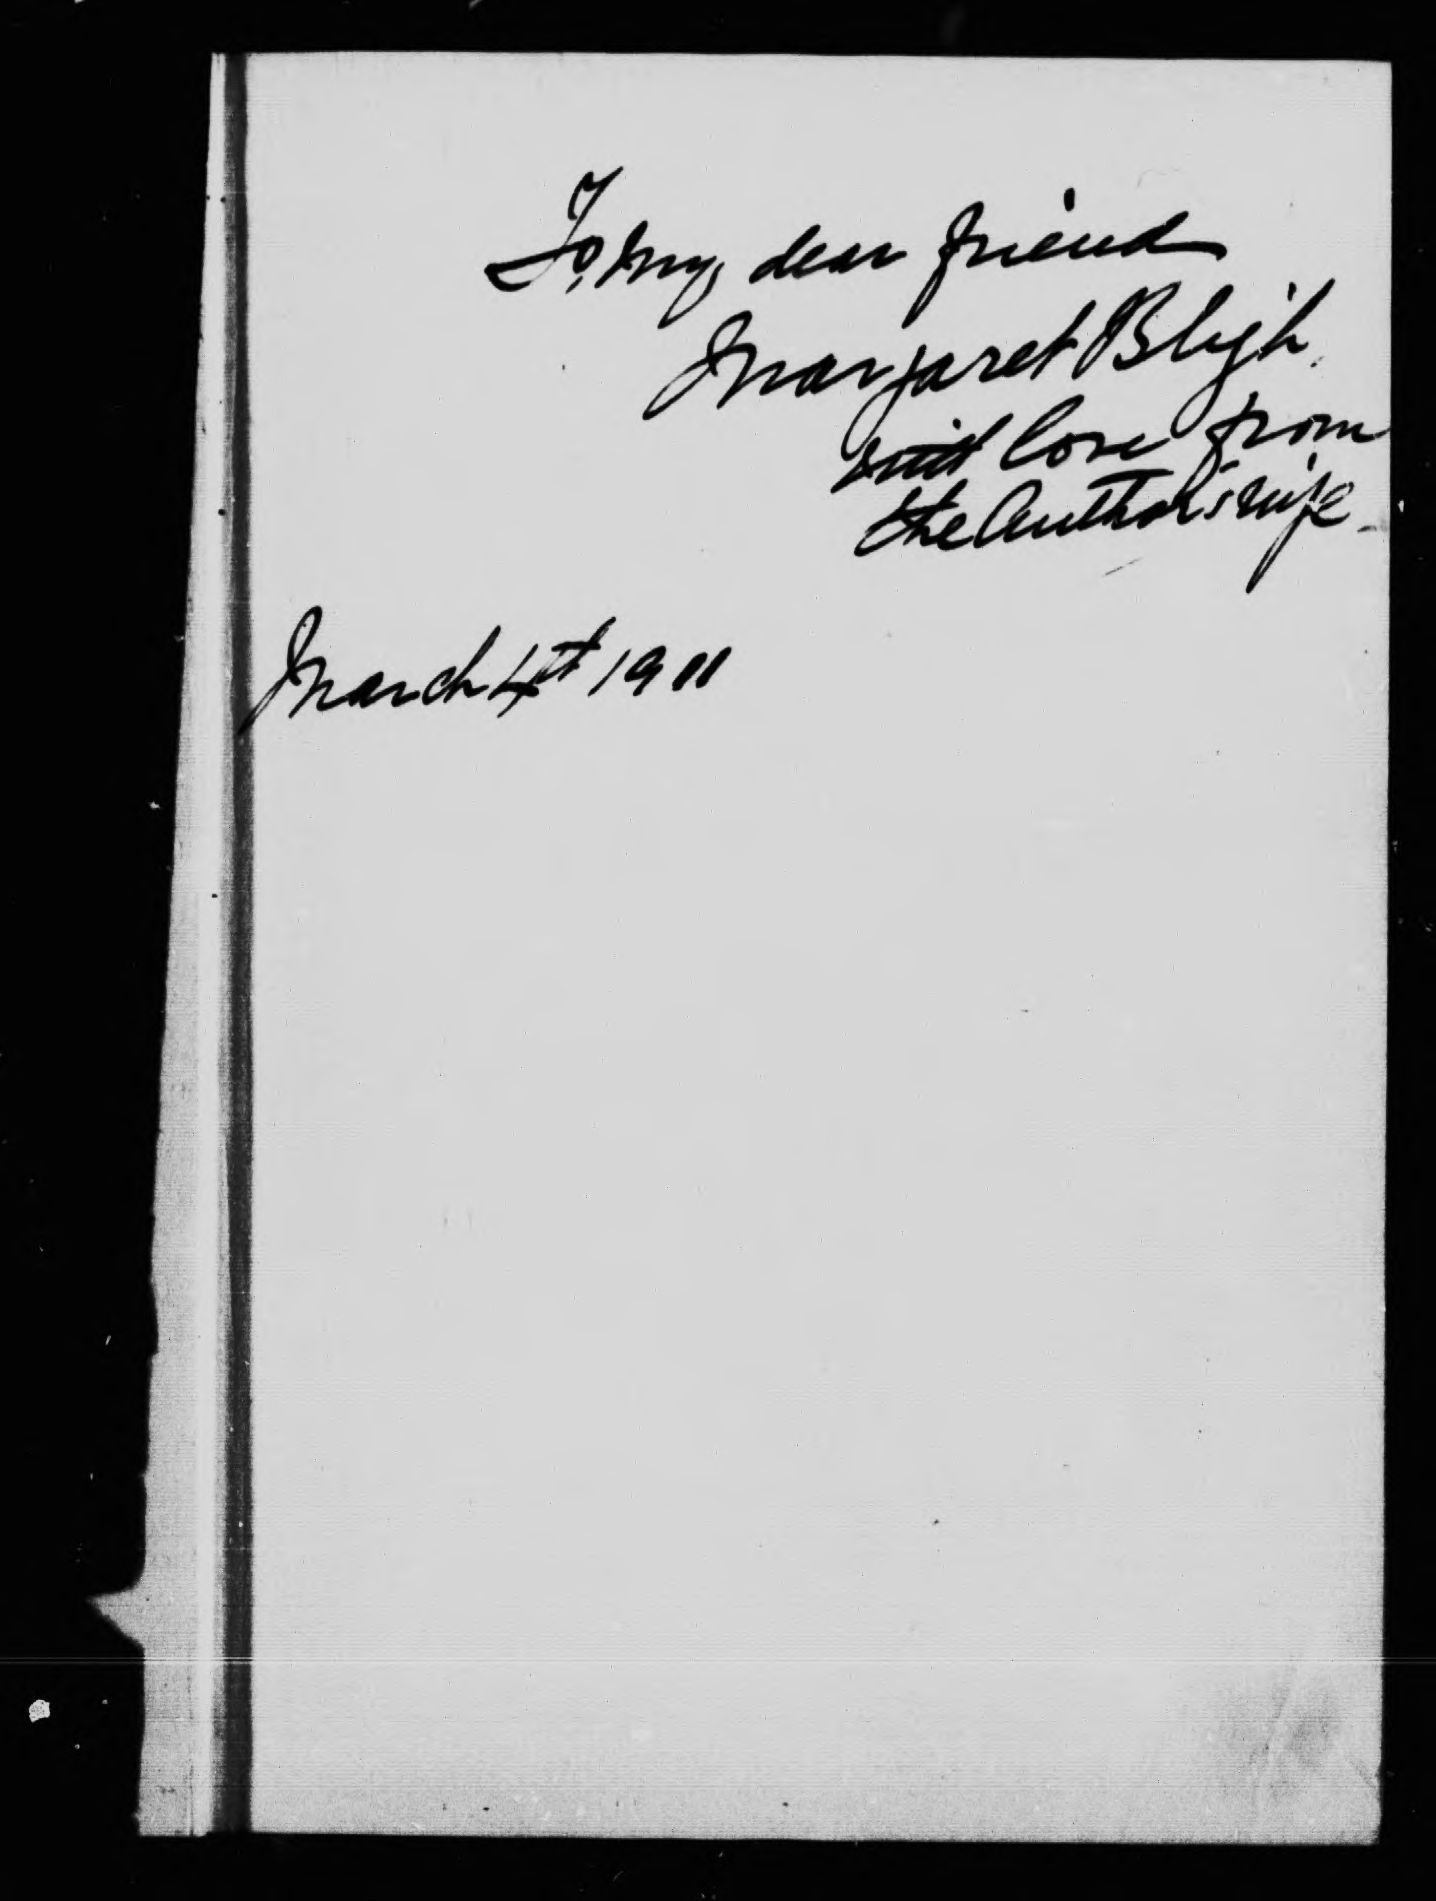 To my dear friend
Margaret Bligh
with love from
the Author's wife -
March 4th 1911